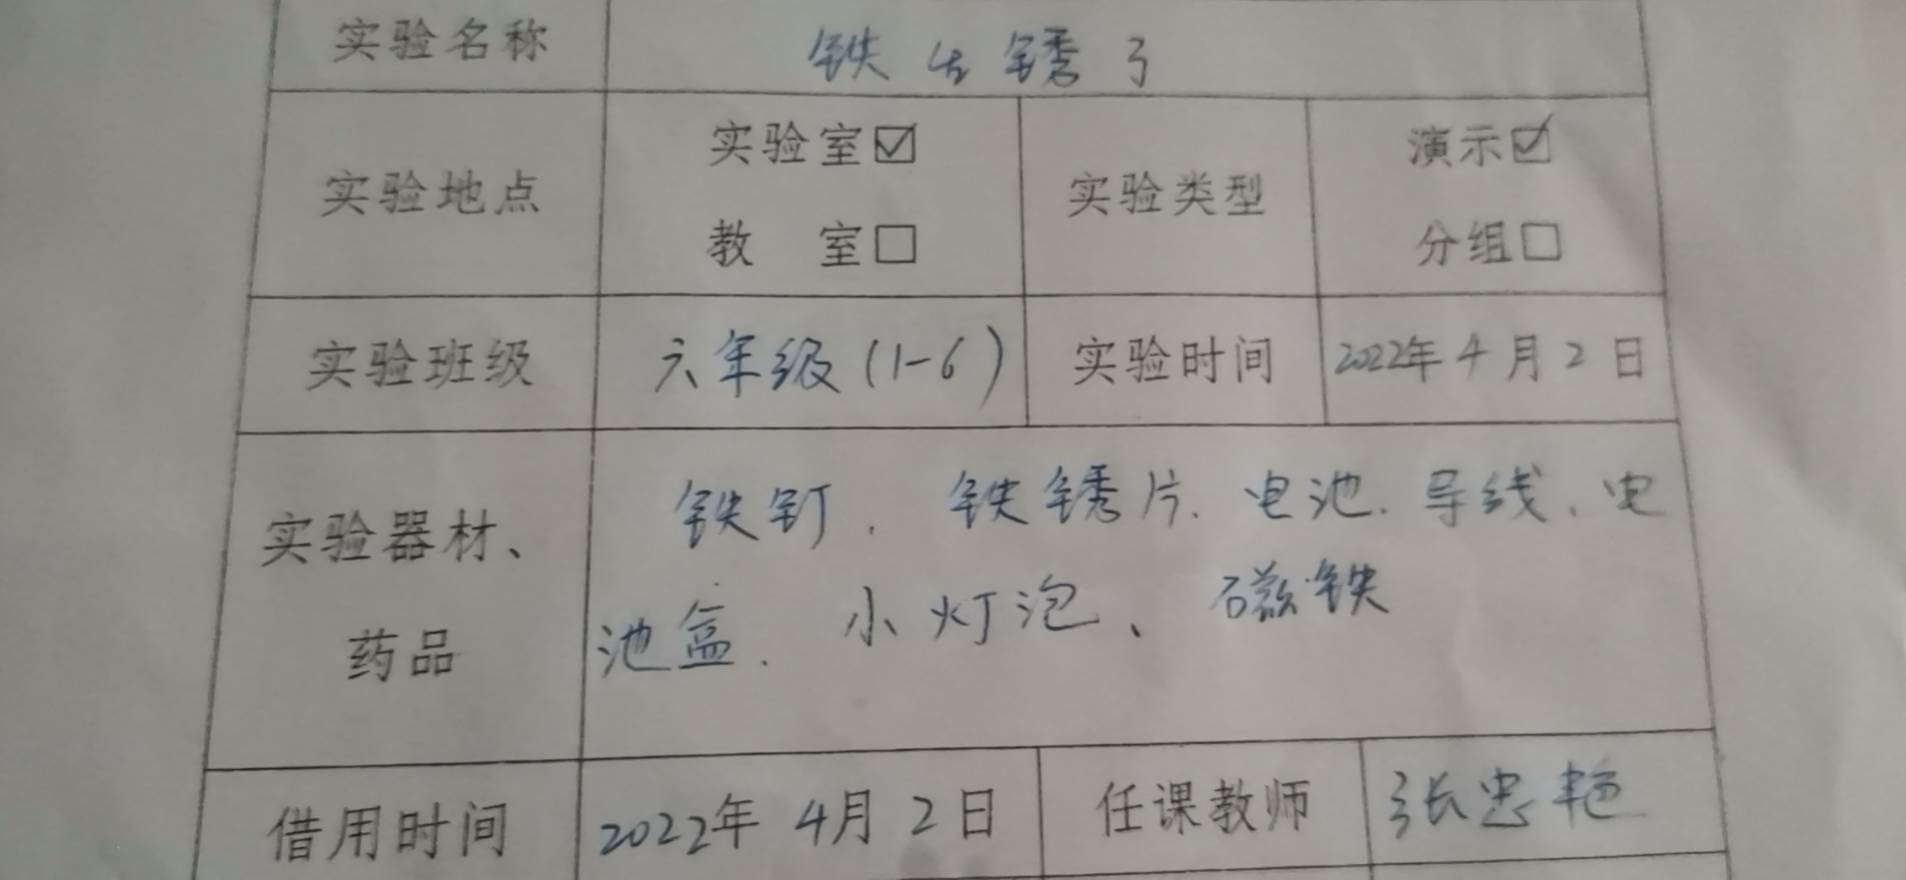 实验名称 铁生锈了
实验室☑ 演示☑
实验地点 实验类型
教 室□ 分组□
实验班级 六年级(1-6) 实验时间 2022年4月2日
铁钉、铁锈片、电池、导线、电
实验器材、
池盒、小灯泡、磁铁
药品
借用时间 2022年4月2日 任课教师 张忠艳